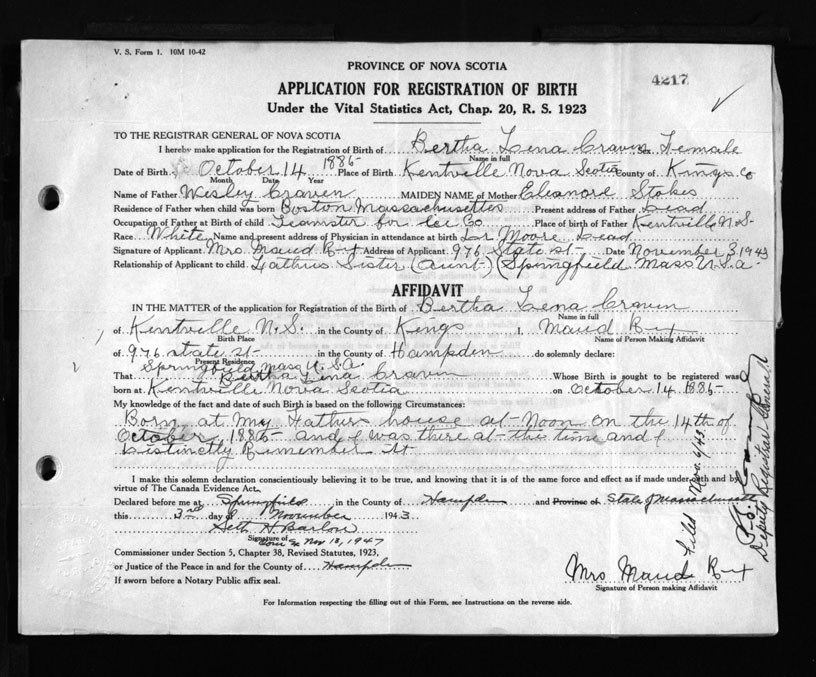 V. S. Form 1. 10M 10-42
PROVINCE OF NOVA SCOTIA
4217
APPLICATION FOR REGISTRATION OF BIRTH
Under the Vital Statistics Act, Chap. 20, R. S. 1923
TO THE REGISTRAR GENERAL OF NOVA SCOTIA
I hereby make application for the Registration of Birth of Bertha Lena Craven Sex Female
Name in full
Date of Birth October 14 1885 Place of Birth Kentville Nova Scotia County of Kings Co
Month Date Year
Name of Father Wesley Craven MAIDEN NAME of Mother Eleanore Stokes
Residence of Father when child was born Boston Massachusettes Present address of Father Dead
Occupation of Father at Birth of child Teamster for Ice Co Place of birth of Father Kentville N.S.
Race White Name and present address of Physician in attendance at birth Dr Moore Dead
Signature of Applicant Mrs Maud Rix Address of Applicant 976 State St- Date November 3 1943
Relationship of Applicant to child Fathers Sister (Aunt-) (Springfield Mass U.S.A.
AFFIDAVIT
IN THE MATTER of the application for Registration of the Birth of Bertha Lena Craven
Name in full
of Kentville N.S. in the County of Kings I, Maud Rix
Birth Place Name of Person Making Affidavit
of 976 State St- in the County of Hampden do solemnly declare:
Present Residence
Springfield Mass U.S.A.
That Bertha Lena Craven Whose Birth is sought to be registered was
born at Kentville Nova Scotia on October 14 1885
My knowledge of the fact and date of such Birth is based on the following Circumstances:
Born at my Fathers house at Noon on the 14th of
October, 1885 and I was there at the time and I
Distinctly Remember it
I make this solemn declaration conscientiously believing it to be true, and knowing that it is of the same force and effect as if made under oath and by
virtue of The Canada Evidence Act.
Declared before me at Springfield in the County of Hampden and Province of State of Massachusetts
this 3rd day of November 1943
Seth H Barlow
Signature of
Com Ex Nov 13, 1947
Commissioner under Section 5, Chapter 38, Revised Statutes, 1923,
or Justice of the Peace in and for the County of Hampden
If sworn before a Notary Public affix seal.
Mrs Maud Rix
Signature of Person making Affidavit
For Information respecting the filling out of this Form, see Instructions on the reverse side.
Filed Nov. 9/43
Deputy Registrar General